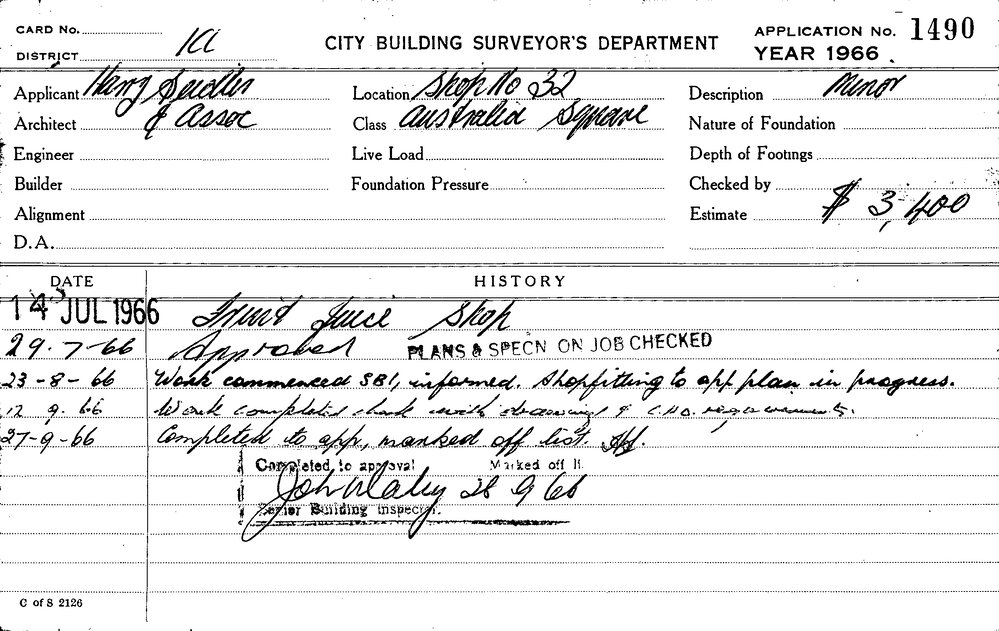 CARD No.
DISTRICT
CITY BUILDING SURVEYOR'S DEPARTMENT
APPLICATION No. 1490
YEAR 1966.
Applicant Harry Seidler
Architect & Assoc
Engineer
Builder
Alignment
D.A.
Location Shop No 32
Class Australia Square
Live Load
Foundation Pressure
Description Minor
Nature of Foundation
Depth of Footings
Checked by
Estimate $ 3,400
DATE HISTORY
14 JUL 1966 Fruit Juice Shop
29-7-66 Approved PLANS & SPECN ON JOB CHECKED
23-8-66 Work commenced SBI, informed. Shopfitting to app plan in progress.
12 9. 66 Work completed check with drawings & C.H.O. requirements.
27-9-66 Completed to app, marked off list.
Completed to approval Marked off li
John Daley 28 9 66
Senior Building Inspector.
C of S 2126